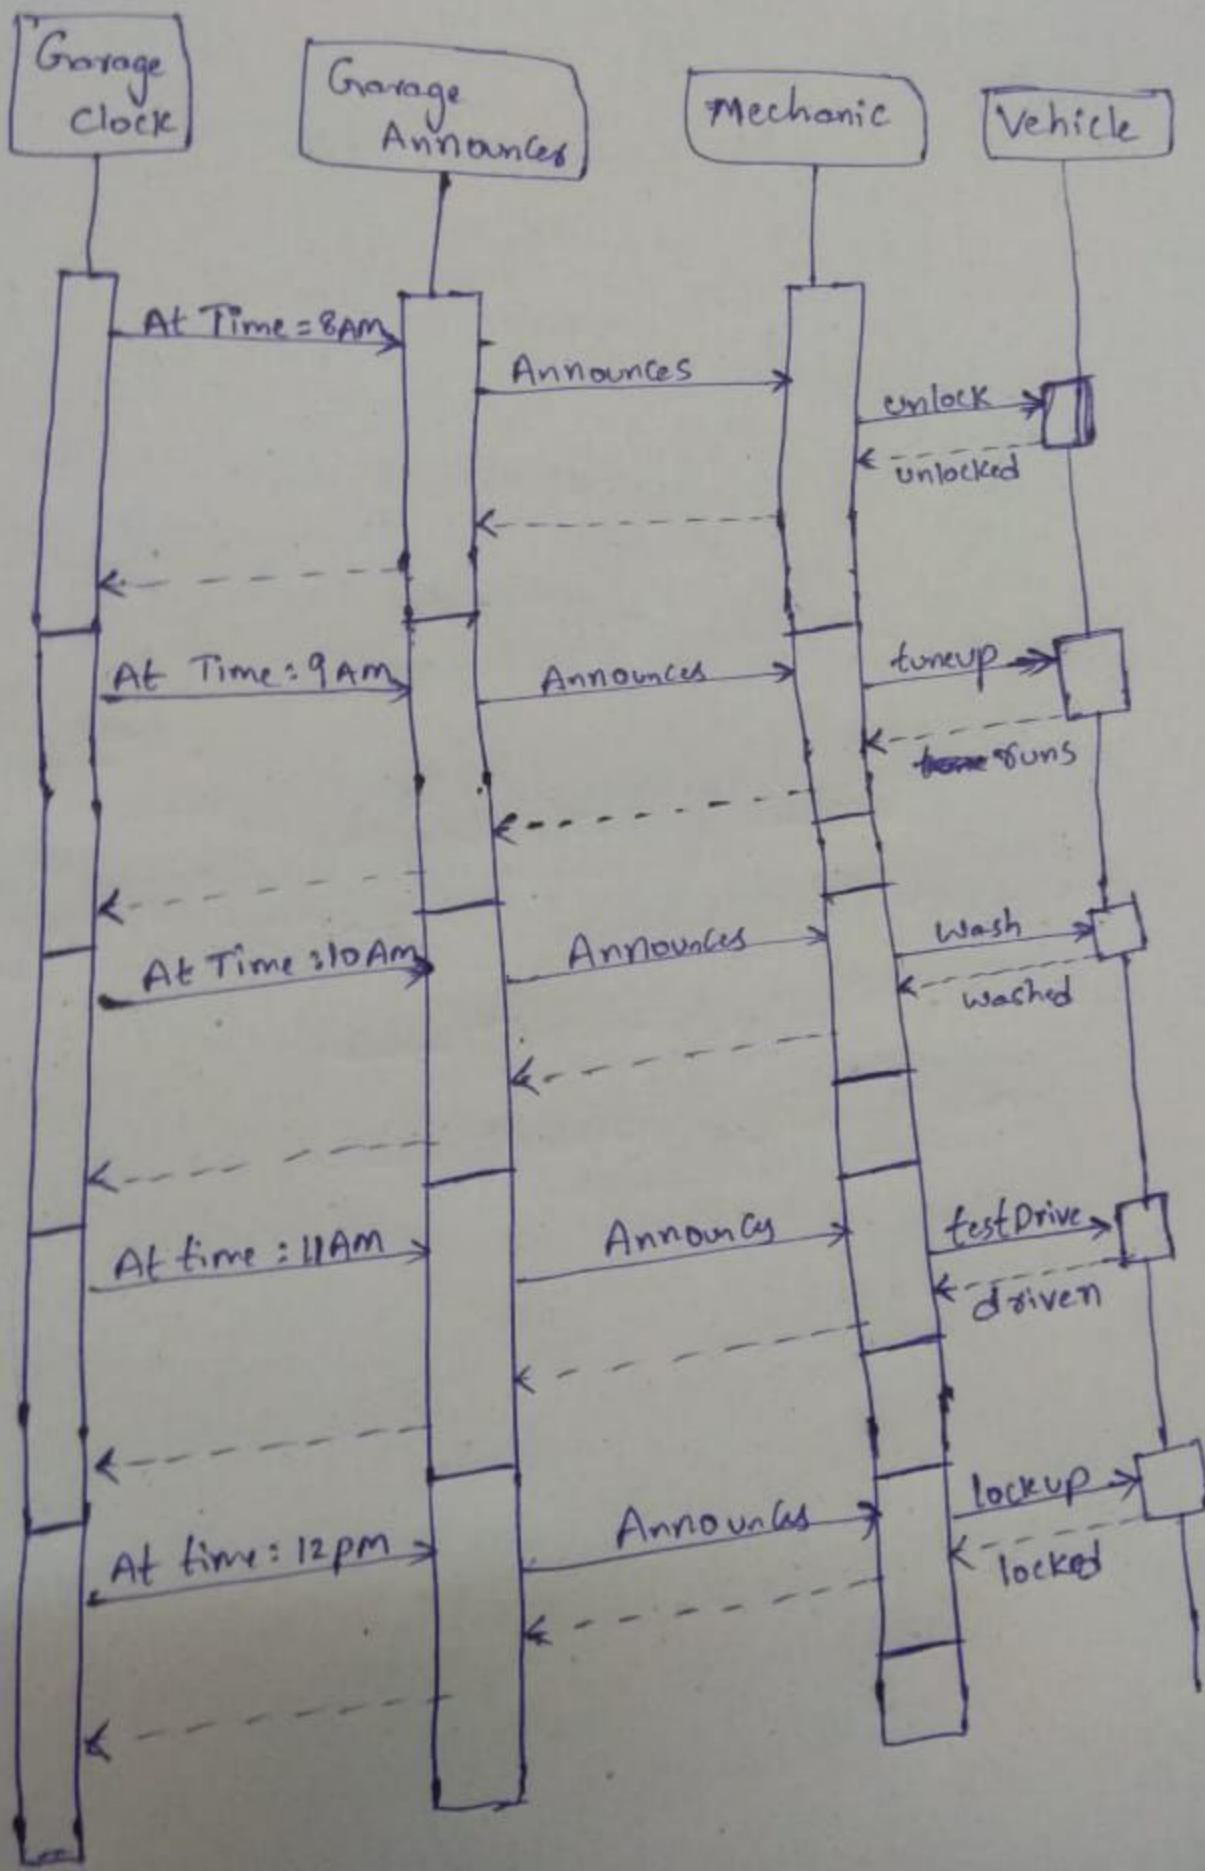 Garage
Clock
Garage
Announcer
Mechanic
Vehicle
At Time = 8AM
Announces
unlock
unlocked
At Time : 9AM
Announces
tuneup
runs
At Time : 10AM
Announces
Wash
washed
At time : 11AM
Announces
testDrive
driven
At time : 12pm
Announces
lockup
locked